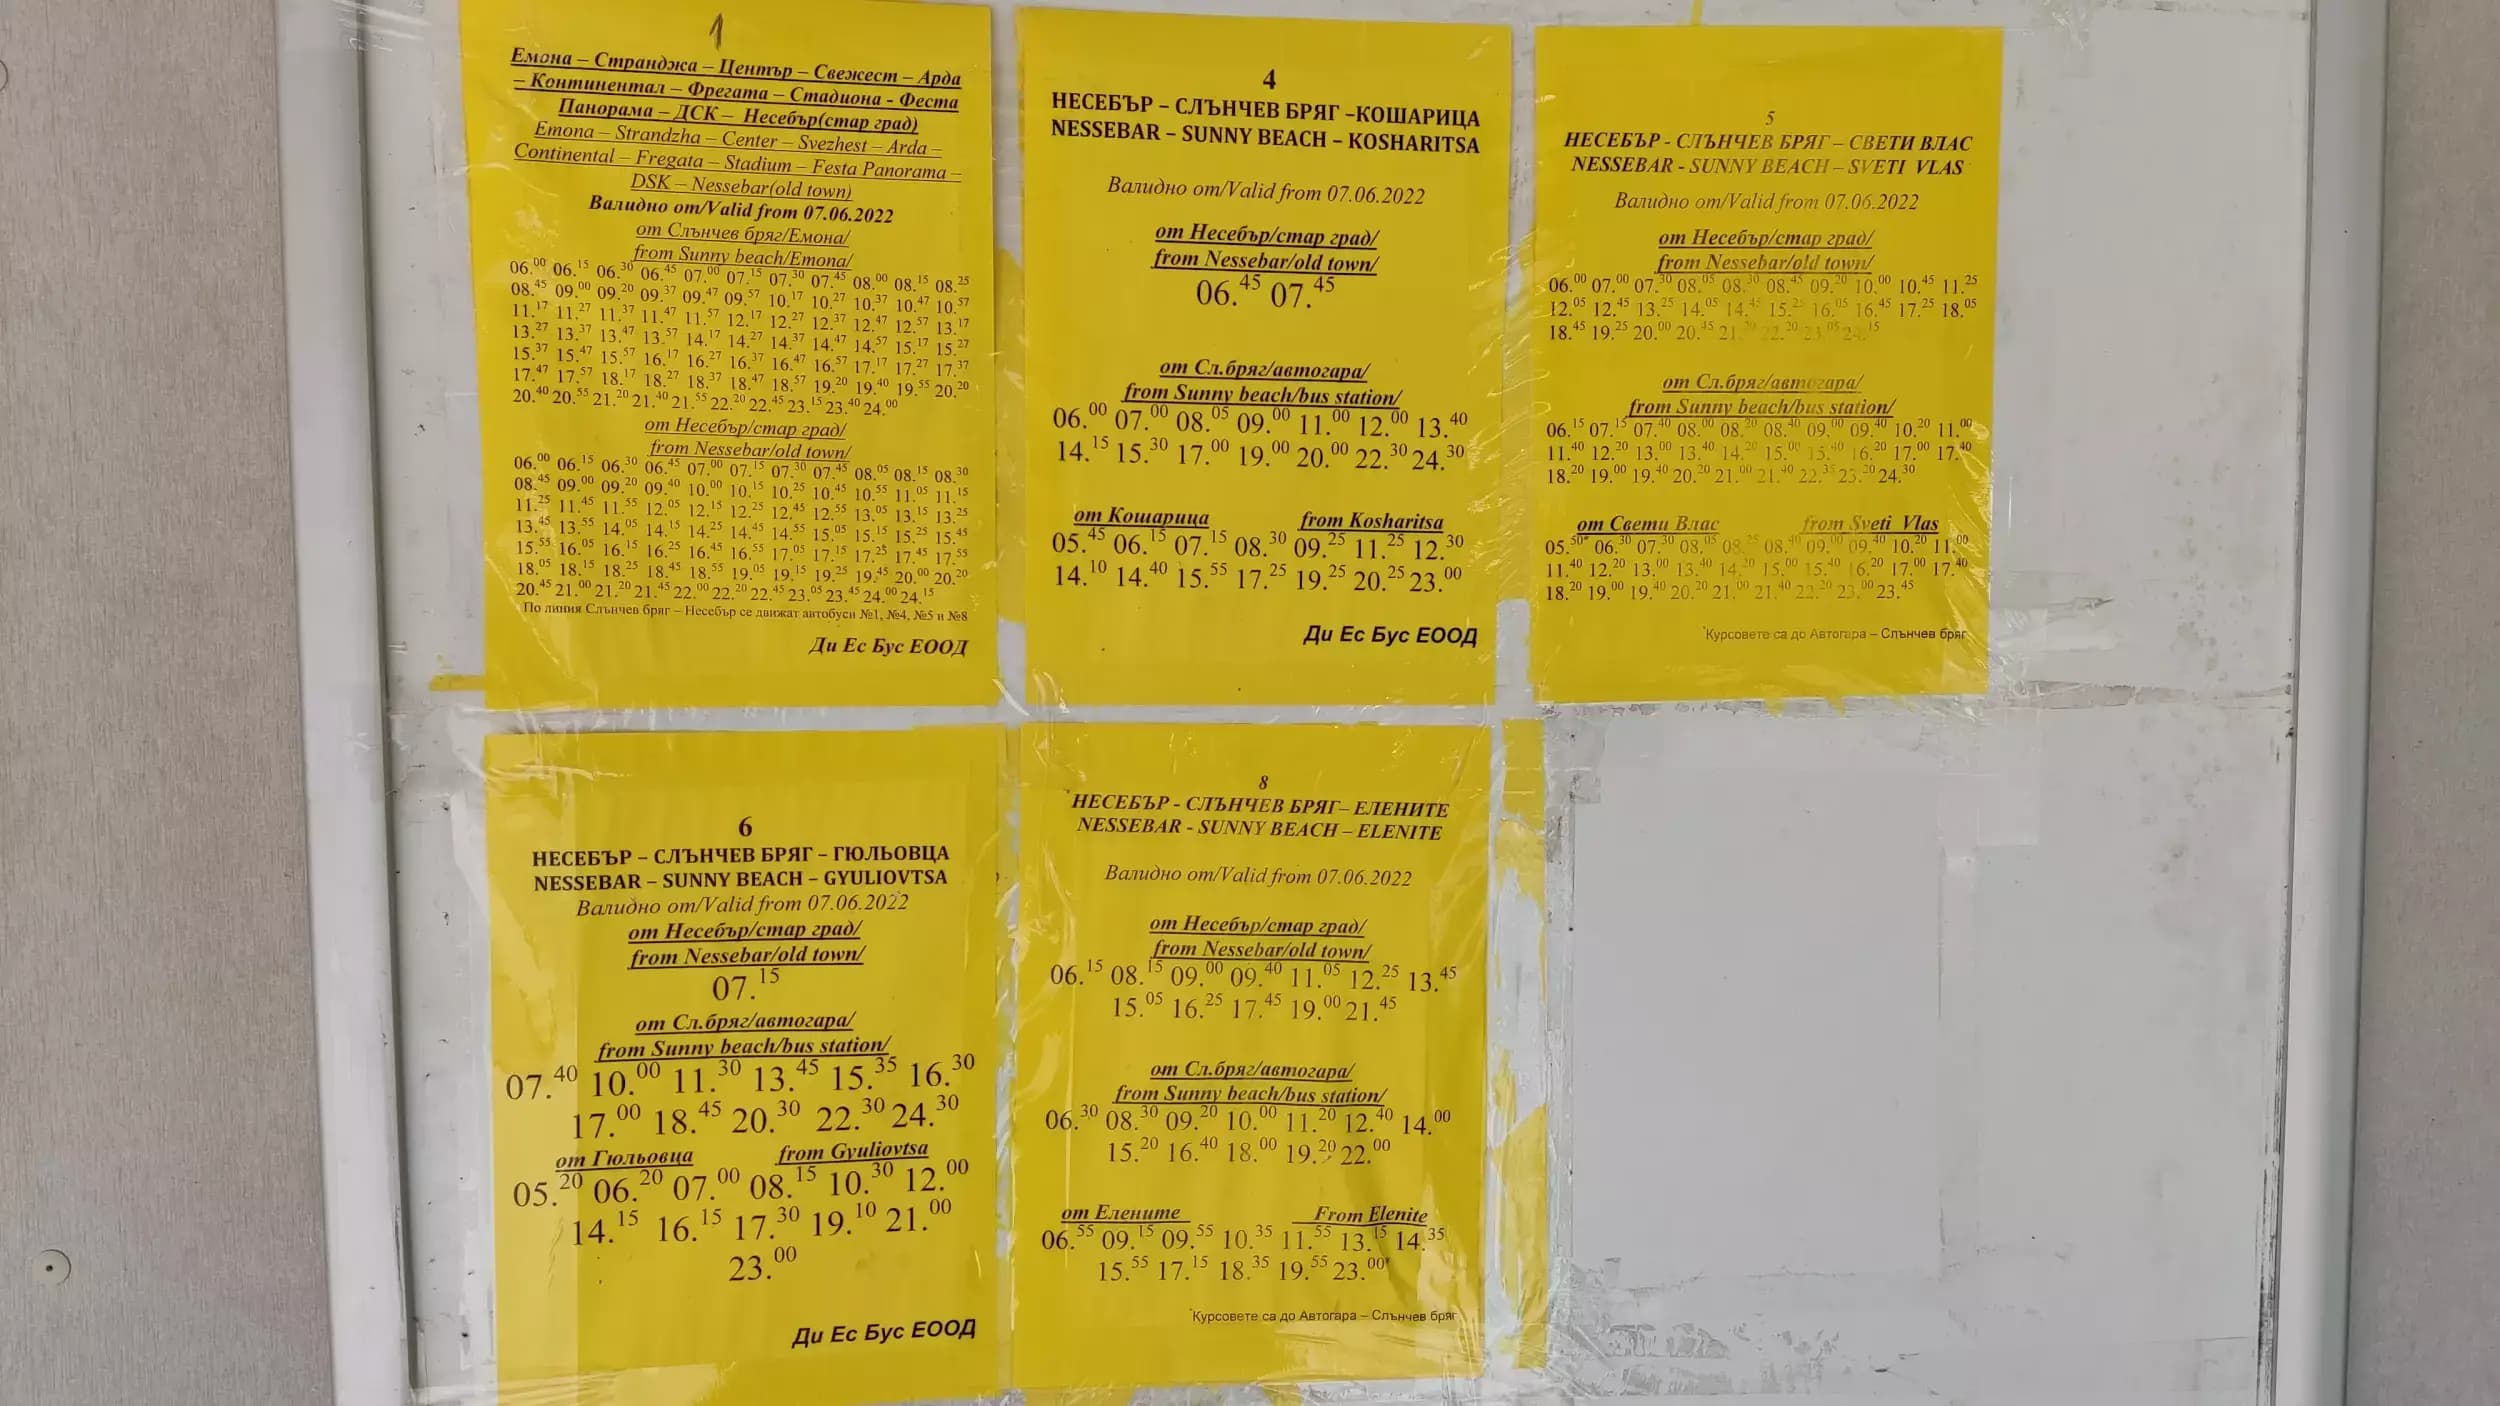 1
Емона – Странджа – Център – Свежест – Арда
– Континентал – Фрегата – Стадиона - Феста
Панорама – ДСК – Несебър(стар град)
Emona – Strandzha – Center – Svezhest – Arda –
Continental – Fregata – Stadium – Festa Panorama –
DSK – Nessebar(old town)
Валидно от/Valid from 07.06.2022
от Слънчев бряг/Емона/
from Sunny beach/Emona/
06.00 06.15 06.30 06.45 07.00 07.15 07.30 07.45 08.00 08.15 08.25
08.45 09.00 09.20 09.37 09.47 09.57 10.17 10.27 10.37 10.47 10.57
11.17 11.27 11.37 11.47 11.57 12.17 12.27 12.37 12.47 12.57 13.17
13.27 13.37 13.47 13.57 14.17 14.27 14.37 14.47 14.57 15.17 15.27
15.37 15.47 15.57 16.17 16.27 16.37 16.47 16.57 17.17 17.27 17.37
17.47 17.57 18.17 18.27 18.37 18.47 18.57 19.20 19.40 19.55 20.20
20.40 20.55 21.20 21.40 21.55 22.20 22.45 23.15 23.40 24.00
от Несебър/стар град/
from Nessebar/old town/
06.00 06.15 06.30 06.45 07.00 07.15 07.30 07.45 08.05 08.15 08.30
08.45 09.00 09.20 09.40 10.00 10.15 10.25 10.45 10.55 11.05 11.15
11.25 11.45 11.55 12.05 12.15 12.25 12.45 12.55 13.05 13.15 13.25
13.45 13.55 14.05 14.15 14.25 14.45 14.55 15.05 15.15 15.25 15.45
15.55 16.05 16.15 16.25 16.45 16.55 17.05 17.15 17.25 17.45 17.55
18.05 18.15 18.25 18.45 18.55 19.05 19.15 19.25 19.45 20.00 20.20
20.45 21.00 21.20 21.45 22.00 22.20 22.45 23.05 23.45 24.00 24.15
По линия Слънчев бряг – Несебър се движат автобуси №1, №4, №5 и №8
Ди Ес Бус ЕООД
4
НЕСЕБЪР – СЛЪНЧЕВ БРЯГ –КОШАРИЦА
NESSEBAR – SUNNY BEACH – KOSHARITSA
Валидно от/Valid from 07.06.2022
от Несебър/стар град/
from Nessebar/old town/
06.45 07.45
от Сл.бряг/автогара/
from Sunny beach/bus station/
06.00 07.00 08.05 09.00 11.00 12.00 13.40
14.15 15.30 17.00 19.00 20.00 22.30 24.30
от Кошарица from Kosharitsa
05.45 06.15 07.15 08.30 09.25 11.25 12.30
14.10 14.40 15.55 17.25 19.25 20.25 23.00
Ди Ес Бус ЕООД
5
НЕСЕБЪР - СЛЪНЧЕВ БРЯГ – СВЕТИ ВЛАС
NESSEBAR - SUNNY BEACH – SVETI VLAS
Валидно от/Valid from 07.06.2022
от Несебър/стар град/
from Nessebar/old town/
06.00 07.00 07.30 08.05 08.30 08.45 09.20 10.00 10.45 11.25
12.05 12.45 13.25 14.05 14.45 15.25 16.05 16.45 17.25 18.05
18.45 19.25 20.00 20.45 21.20 22.20 23.05 24.15
от Сл.бряг/автогара/
from Sunny beach/bus station/
06.15 07.15 07.40 08.00 08.20 08.40 09.00 09.40 10.20 11.00
11.40 12.20 13.00 13.40 14.20 15.00 15.40 16.20 17.00 17.40
18.20 19.00 19.40 20.20 21.00 21.40 22.35 23.20 24.30
от Свети Влас from Sveti Vlas
05.50* 06.30 07.30 08.05 08.25 08.40 09.00 09.40 10.20 11.00
11.40 12.20 13.00 13.40 14.20 15.00 15.40 16.20 17.00 17.40
18.20 19.00 19.40 20.20 21.00 21.40 22.20 23.00 23.45
*Курсовете са до Автогара – Слънчев бряг
6
НЕСЕБЪР – СЛЪНЧЕВ БРЯГ – ГЮЛЬОВЦА
NESSEBAR – SUNNY BEACH – GYULIOVTSA
Валидно от/Valid from 07.06.2022
от Несебър/стар град/
from Nessebar/old town/
07.15
от Сл.бряг/автогара/
from Sunny beach/bus station/
07.40 10.00 11.30 13.45 15.35 16.30
17.00 18.45 20.30 22.30 24.30
от Гюльовца from Gyuliovtsa
05.20 06.20 07.00 08.15 10.30 12.00
14.15 16.15 17.30 19.10 21.00
23.00
Ди Ес Бус ЕООД
8
НЕСЕБЪР - СЛЪНЧЕВ БРЯГ– ЕЛЕНИТЕ
NESSEBAR - SUNNY BEACH – ELENITE
Валидно от/Valid from 07.06.2022
от Несебър/стар град/
from Nessebar/old town/
06.15 08.15 09.00 09.40 11.05 12.25 13.45
15.05 16.25 17.45 19.00 21.45
от Сл.бряг/автогара/
from Sunny beach/bus station/
06.30 08.30 09.20 10.00 11.20 12.40 14.00
15.20 16.40 18.00 19.20 22.00
от Елените From Elenite
06.55 09.15 09.55 10.35 11.55 13.15 14.35
15.55 17.15 18.35 19.55 23.00*
*Курсовете са до Автогара – Слънчев бряг